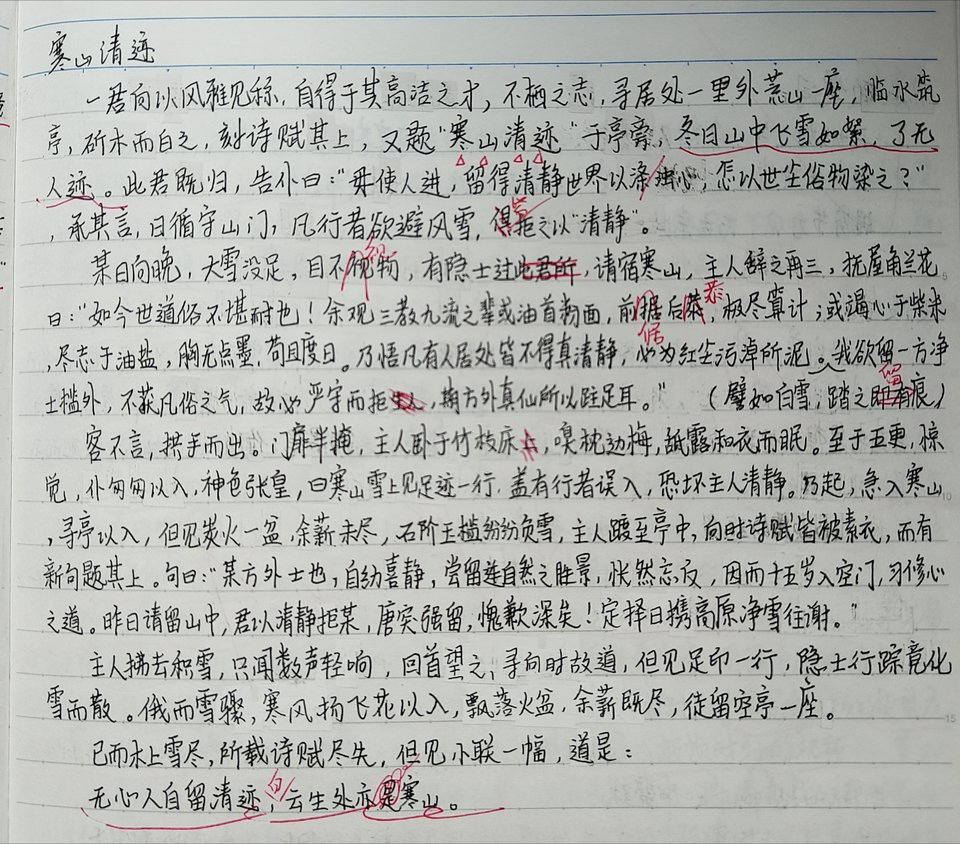 寒山清迹
一君向以风雅见称，自得于其高洁之才，不栖之志，寻居处一里外荒山一座，临水筑
亭，斫木而白之，刻诗赋其上，又题“寒山清迹”于亭旁，冬日山中飞雪如絮，了无
人迹。此君既归，告仆曰：“毋使人进，留得清静世界以涤浊心，怎以世尘俗物染之？”
，承其言，日循守山门，凡行者欲避风雪，皆拒之以“清静”。
某日向晚，大雪没足，目不视物，有隐士过此君所，请宿寒山，主人辞之再三，抚屋角兰花
曰：“如今世道俗不堪耐也！余观三教九流之辈或油首粉面，前倨后恭，极尽算计；或竭心于柴米
，尽志于油盐，胸无点墨，苟且度日。乃悟凡有人居处皆不得真清静，必为红尘污淖所泥。我欲留一方净
土槛外，不萦凡俗之气，故必严守而拒生人，期方外真仙所以驻足耳。”（譬如白雪，踏之即留痕）
客不言，拱手而出。门扉半掩，主人卧于竹枝床上，嗅枕边梅，舐露和衣而眠。至于五更，惊
觉，仆匆匆以入，神色张皇，曰寒山雪上见足迹一行，盖有行者误入，恐坏主人清静。乃起，急入寒山
，寻亭以入，但见炭火一盆，余薪未尽，石阶玉槛纷纷负雪，主人踱至亭中，向时诗赋皆被素衣，而有
新句题其上。句曰：“某方外士也，自幼喜静，尝留连自然之胜景，怅然忘反，因而十五岁入空门，习修心
之道。昨日请留山中，君以清静拒某，唐突强留，愧歉深矣！定择日携高原净雪往谢。”
主人拂去积雪，只闻数声轻响，回首望之，寻向时故道，但见足印一行，隐士行踪竟化
雪而散。俄而雪骤，寒风扬飞花以入，飘落火盆，余薪既尽，徒留空亭一座。
已而木上雪尽，所载诗赋尽失，但见小联一幅，道是：
无心人自留清迹，白云生处亦是寒山。